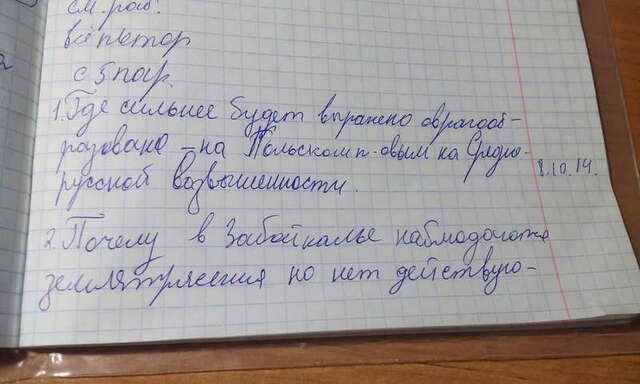 см. раб.
всё повтор
с 5 пар.
1. Где сильнее будет выражено оврагооб-
разование – на Польском п-овым на Средно-
русской возвышенности.
8.10.14.
2. Почему в Забайкалье наблюдаются
землятрясения но нет действую-